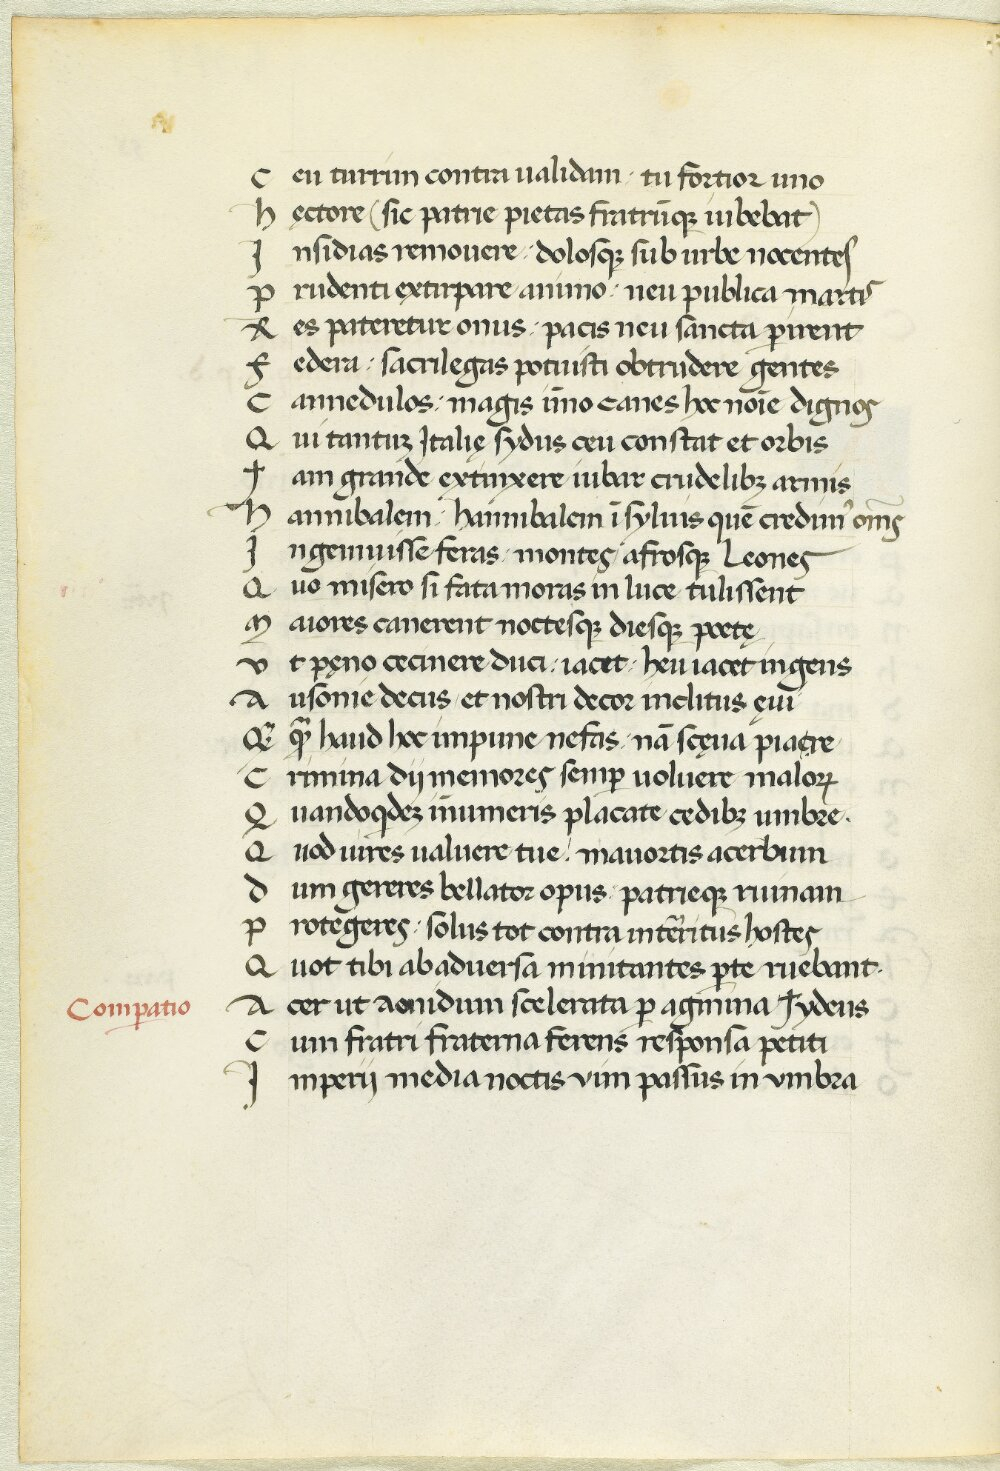 Ceu turrim contra ualidam · tu fortior uno
hęctore (sic patrie pietas fratrūq; iubebat)
Insidias remouere · dolosq; sub urbe nocentes
prudenti extirpare animo · neu publica martis
Res pateretur onus · pacis neu sancta ꝑirent
federa · sacrilegas potuisti obtrudere gentes
Cannedulos · magis īmo canes hoc noīe dignos
Qui tantuz Italię sydus ceu constat et orbis
Tam grande extinxere iubar crudelibz armis
hannibalem · hannibalem ī syluis quē credimꝰ om̄s
Ingemuisse feras · montes afrosq; Leones
Quo misero si fata moras in luce tulissent
Maiores canerent noctesq; diesq; poetę
vt pęno cecinere duci · iacet · heu iacet ingens
Ausonie decus · et nostri decor inclitus ęui
Q haud hoc impune nefas · nā scęua piacre
Crimina dij memores semꝑ uoluere maloꝝ
Quandoqdez īnumeris placate cedibz umbre ·
Quod uires ualuere tue · mauortis acerbum
dum gereres bellator opus · patrieq; ruinam
protegeres · solus tot contra interritus hostes
Quot tibi ab aduersa minitantes ꝑte ruebant ·
Compatio
Acer ut aonidum scelerata ꝑ agmina Tydeus
Cum fratri fraterna ferens responsa petiti
Imperij media noctis vim passus in vmbra